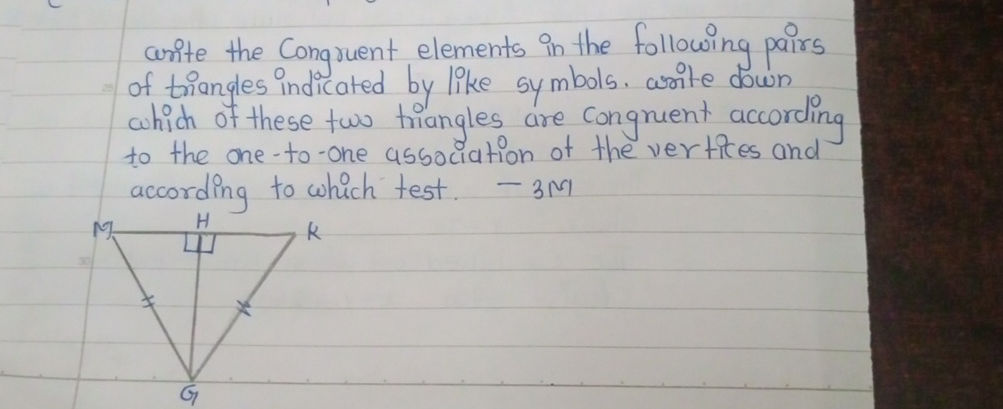 write the Congruent elements in the following pairs
of triangles indicated by like symbols. write down
which of these two triangles are congruent according
to the one-to-one association of the vertices and
according to which test. - 3M
M H K
G